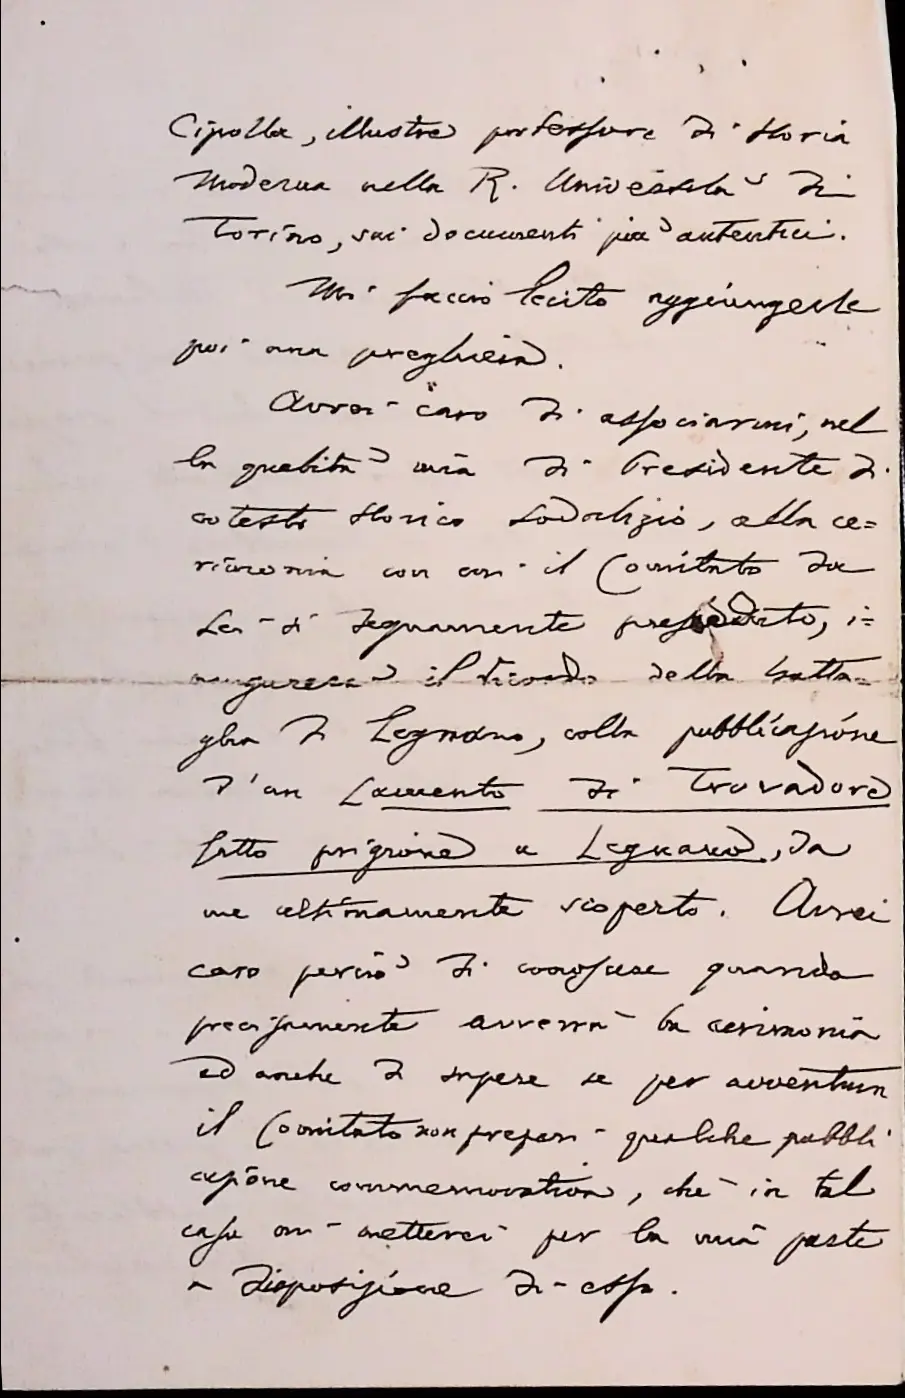 Cipolla, illustre professore di storia
Moderna nella R. Università di
Torino, sui documenti più autentici.
Mi faccio lecito aggiungerle
poi una preghiera.
Avrei caro di associarmi, nel
la qualità mia di Presidente di
cotesto storico Sodalizio, alla ce=
rimonia con cui il Comitato da
Lei sì degnamente presieduto, i=
naugurerà il ricordo della batta=
glia di Legnano, colla pubblicazione
d'un Lamento di Trovadore
fatto prigione a Legnano, da
me ultimamente scoperto. Avrei
caro perciò di conoscere quando
precisamente avverrà la cerimonia
ed anche di sapere se per avventura
il Comitato non prepari qualche pubbli
cazione commemorativa, chè in tal
caso mi metterei per la mia parte
a disposizione di essa.